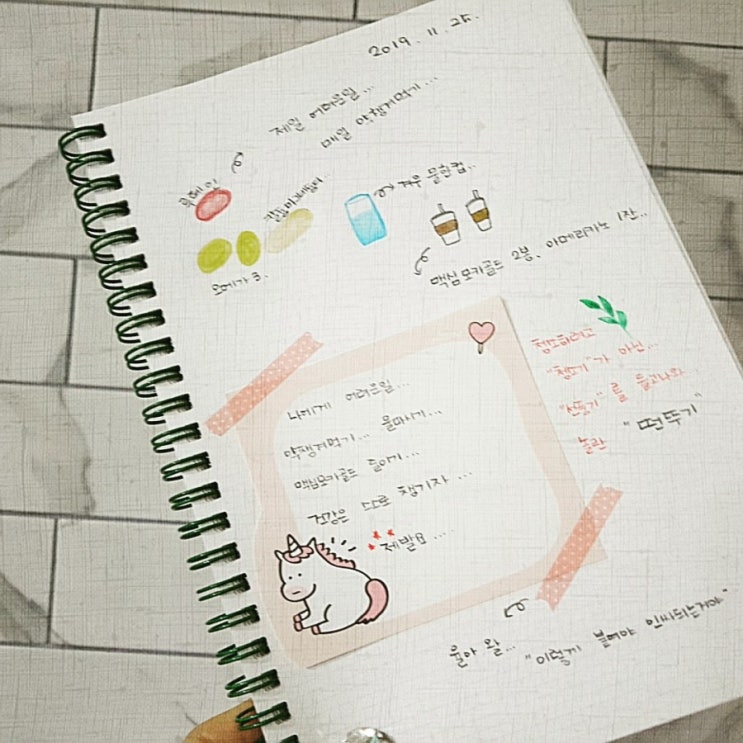 2019. 11. 25.
제일 어려운일...
매일 약챙겨먹기...
루테인
칼슘마그네슘
오메가 3.
겨우 물한컵..
맥심모카골드 2봉. 아메리카노 1잔..
나에게 어려운일...
약챙겨먹기... 물마시기...
맥심모카골드 줄이기...
건강은 스스로 챙기자...
제발요....
첨으하려고
"첨뜨기"가 아닌...
"선뜯기"를 들고나와...
놀란 "떤뚜기"
윤아 왈...
"이렇게 붙여야 인싸되는거야"